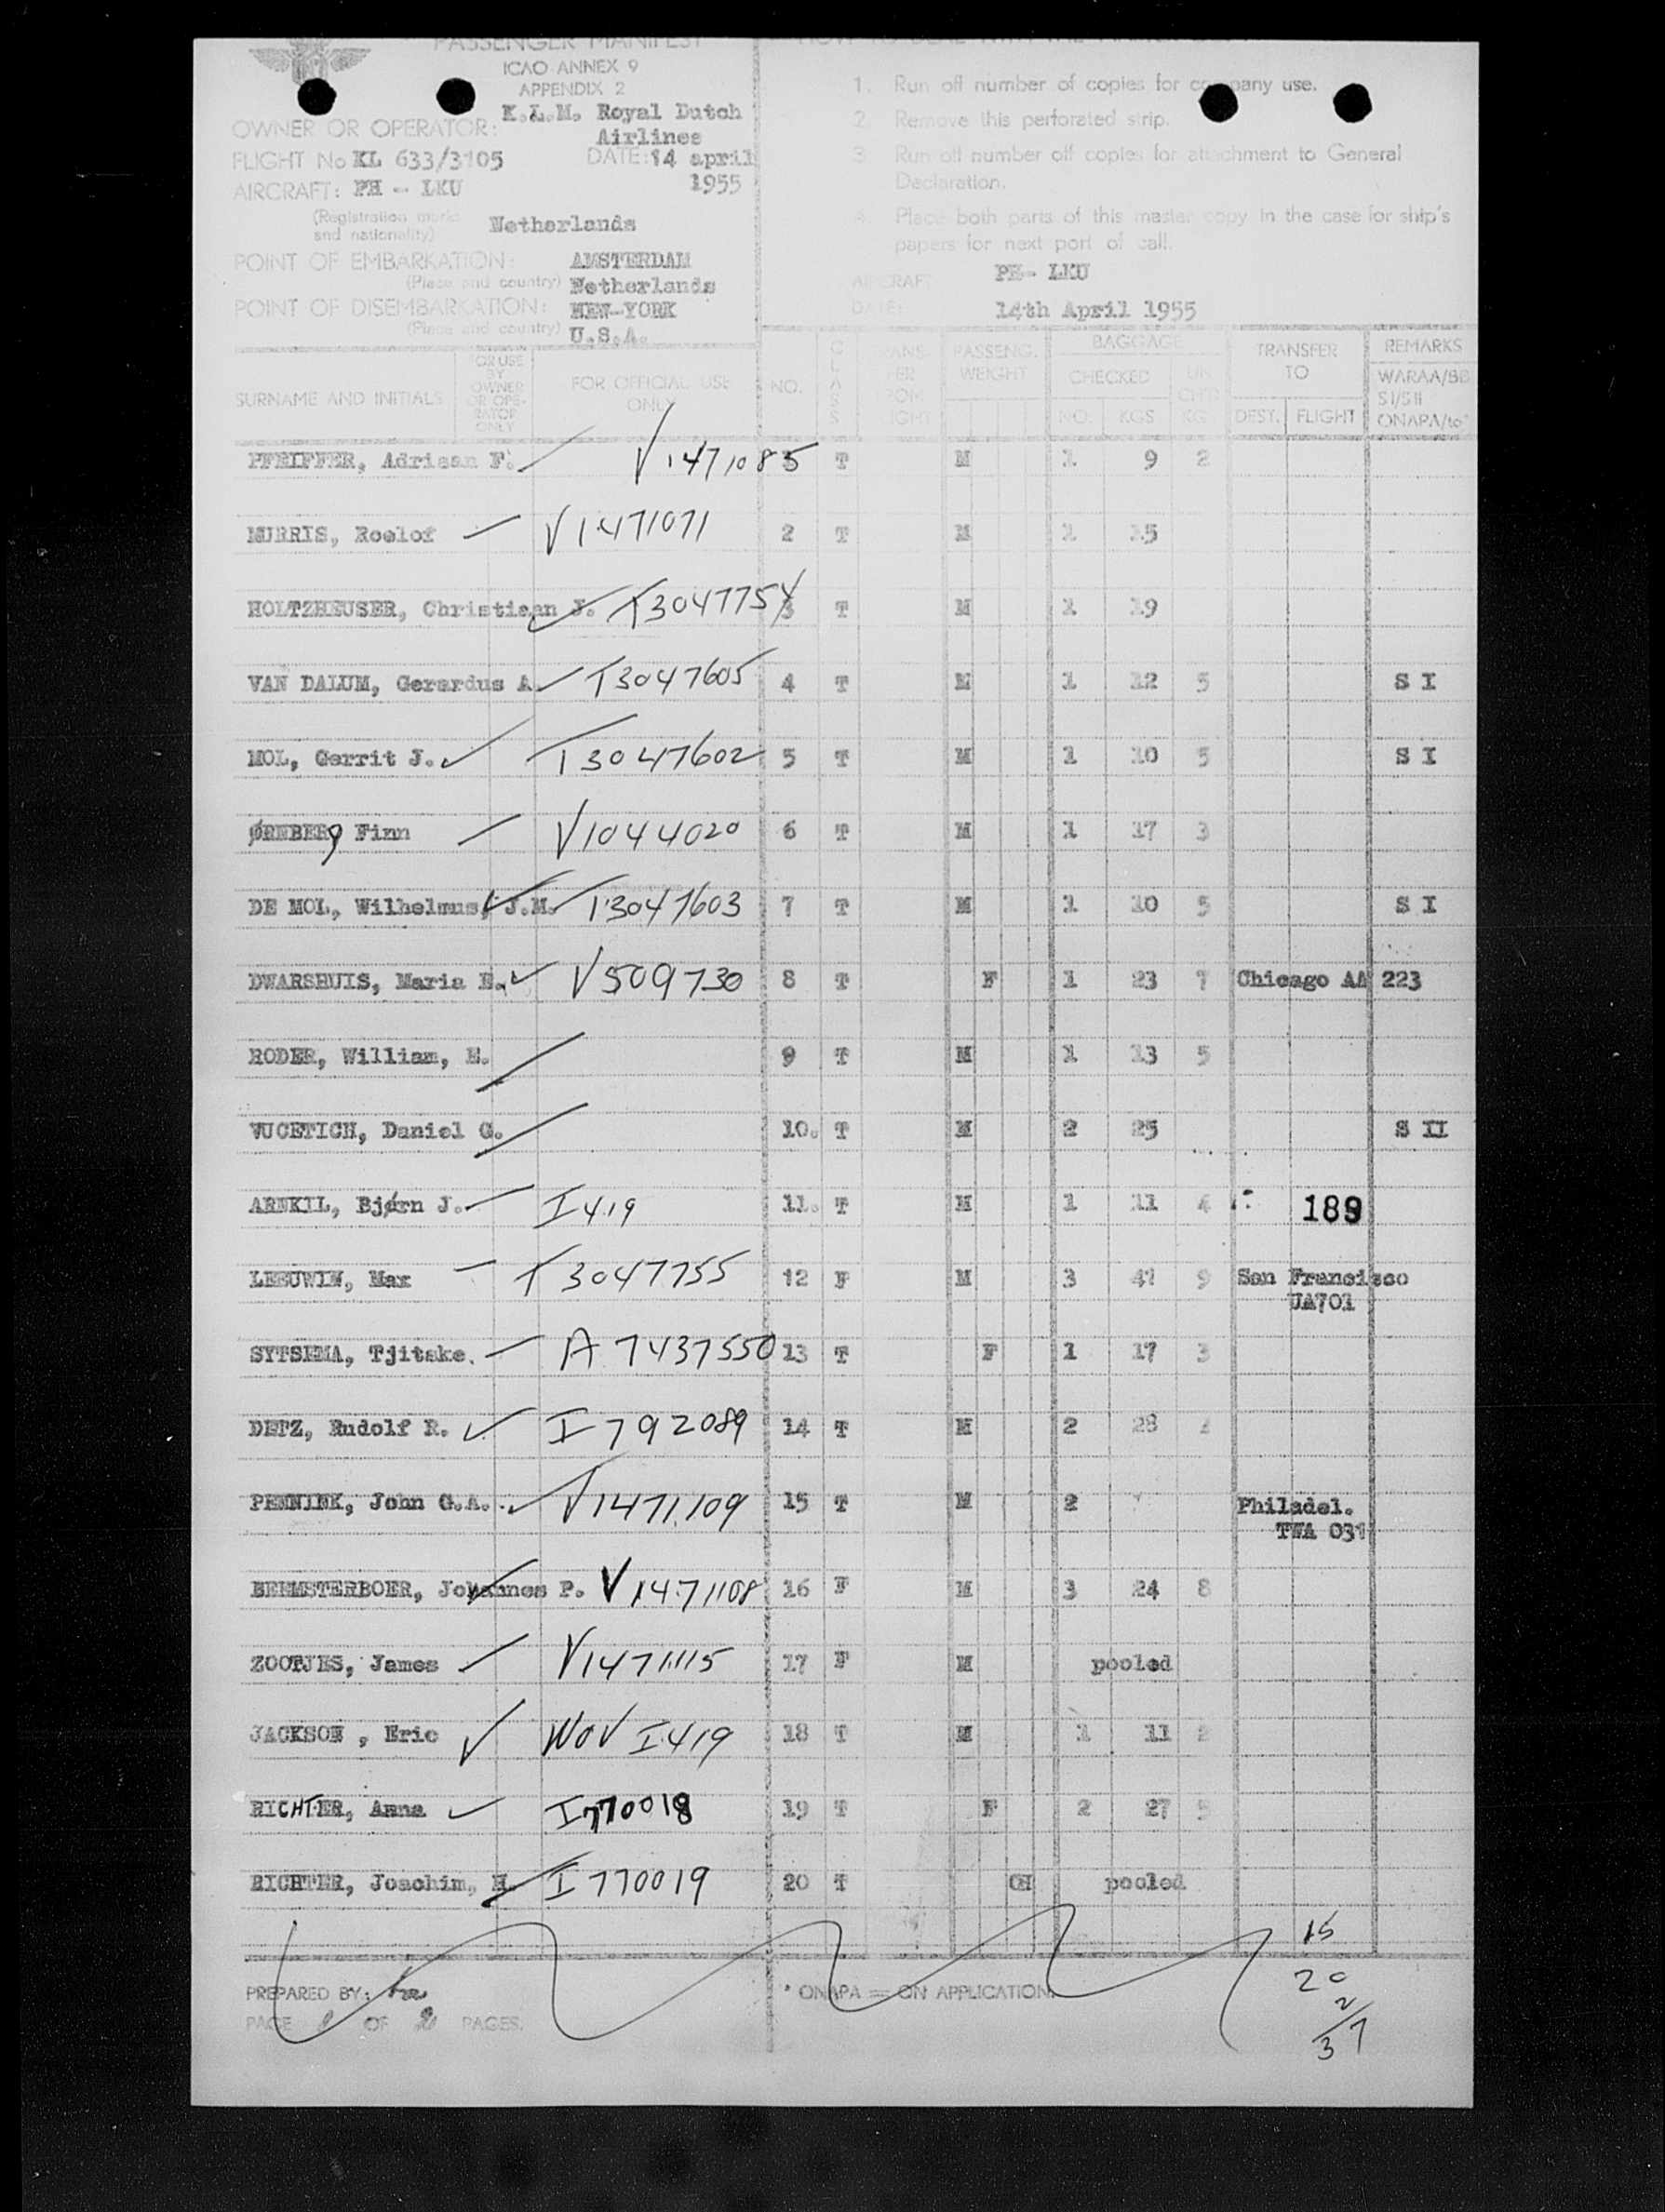 PASSENGER MANIFEST
ICAO ANNEX 9
APPENDIX 2
OWNER OR OPERATOR: K.L.M. Royal Dutch
Airlines
FLIGHT No KL 633/3105 DATE: 14 april
1955
AIRCRAFT: PH - LKU
(Registration marks
and nationality) Netherlands
POINT OF EMBARKATION: AMSTERDAM
(Place and country) Netherlands
POINT OF DISEMBARKATION: NEW-YORK
(Place and country) U.S.A.
1. Run off number of copies for company use.
2. Remove this perforated strip.
3. Run off number off copies for attachment to General
Declaration.
4. Place both parts of this master copy in the case for ship's
papers for next port of call.
AIRCRAFT PH- LKU
DATE: 14th April 1955
SURNAME AND INITIALS
FOR USE
BY
OWNER
OR OPE-
RATOR
ONLY
FOR OFFICIAL USE
ONLY
NO.
CLASS
TRANS-
FER
FROM
FLIGHT
PASSENG.
WEIGHT
BAGGAGE
CHECKED
NO. KGS
UN
CH'D
KG
TRANSFER
TO
DEST. FLIGHT
REMARKS
WARAA/BB
SI/SII
ONAPA/to*
PFEIFFER, Adriaan F. V1471085 T M 1 9 2
MURRIS, Roelof V1471071 2 T M 1 15
HOLTZHEUSER, Christiaan J. T3047754 3 T M 1 19
VAN DALUM, Gerardus A. T3047605 4 T M 1 12 5 S I
MOL, Gerrit J. T3047602 5 T M 1 10 5 S I
ØRNBERg Finn V1044020 6 T M 1 17 3
DE MOL, Wilhelmus, J.M. T3047603 7 T M 1 10 5 S I
DWARSHUIS, Maria E. V509730 8 T F 1 23 7 Chicago AA 223
RODER, William, E. 9 T M 1 13 5
VUCETICH, Daniel G. 10. T M 2 25 S II
ARNKIL, Bjørn J. I 419 11. T M 1 11 4 189
LEEUWIN, Max T 3047755 12 F M 3 41 9 San Francisco
UA701
SYTSEMA, Tjitske. A 7437550 13 T F 1 17 3
DETZ, Rudolf R. I 792089 14 T M 2 28
PENNINK, John G.A. V1471109 15 T M 2 Philadel.
TWA 031
BEEMSTERBOER, Johannes P. V1471108 16 F M 3 24 8
ZOOTJES, James V1471115 17 F M pooled
JACKSON , Eric WOV I 419 18 T M 1 11 2
RICHTER, Anna I770018 19 T F 2 27 5
RICHTER, Joachim, H. I 770019 20 T CH pooled
15
20
2
37
PREPARED BY:
* ONAPA = ON APPLICATION.
PAGE 1 OF 2 PAGES.